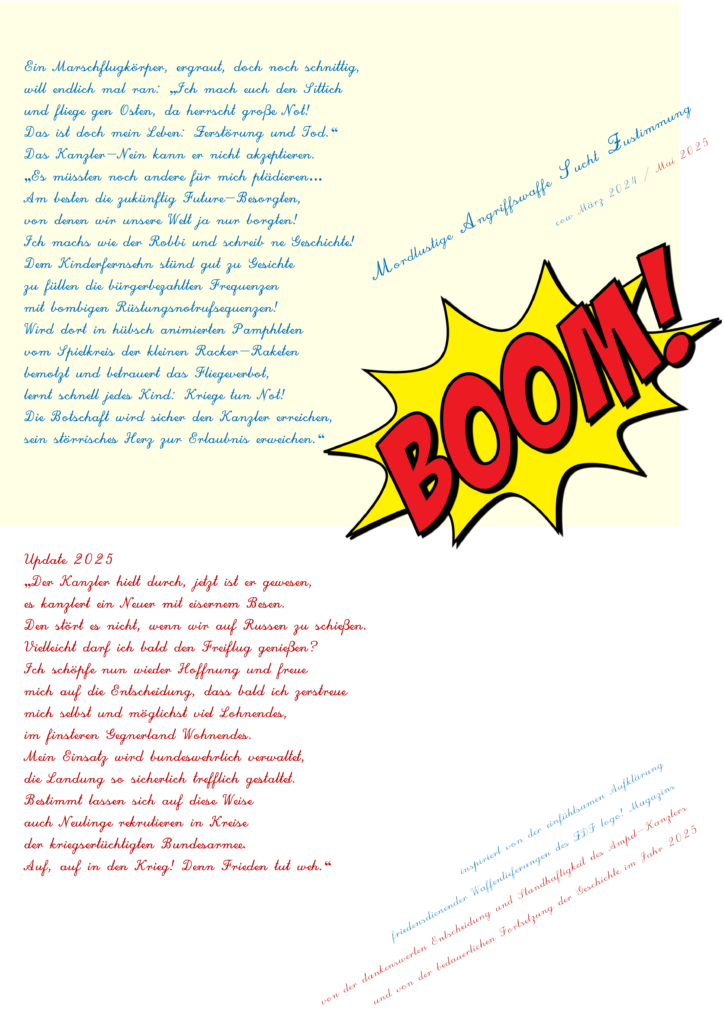 Ein Marschflugkörper, ergraut, doch noch schnittig,
will endlich mal ran: „Ich mach euch den Sittich
und fliege gen Osten, da herrscht große Not!
Das ist doch mein Leben: Zerstörung und Tod.“
Das Kanzler-Nein kann er nicht akzeptieren.
„Es müssten noch andere für mich plädieren...
Am besten die zukünftig Future-Besorgten,
von denen wir unsere Welt ja nur borgten!
Ich machs wie der Robbi und schreib ne Geschichte!
Dem Kinderfernsehn stünd gut zu Gesichte
zu füllen die bürgerbezahlten Frequenzen
mit bombigen Rüstungsnotrufsequenzen!
Wird dort in hübsch animierten Pamphleten
vom Spielkreis der kleinen Racker-Raketen
bemotzt und betrauert das Fliegeverbot,
lernt schnell jedes Kind: Kriege tun Not!
Die Botschaft wird sicher den Kanzler erreichen,
sein störrisches Herz zur Erlaubnis erweichen.“
Mordlustige Angriffswaffe Sucht Zustimmung
cow März 2024 / Mai 2025
BOOM!
Update 2025
„Der Kanzler hielt durch, jetzt ist er gewesen,
es kanzlert ein Neuer mit eisernem Besen.
Den stört es nicht, wenn wir auf Russen zu schießen.
Vielleicht darf ich bald den Freiflug genießen?
Ich schöpfe nun wieder Hoffnung und freue
mich auf die Entscheidung, dass bald ich zerstreue
mich selbst und möglichst viel Lohnendes,
im finsteren Gegnerland Wohnendes.
Mein Einsatz wird bundeswehrlich verwaltet,
die Landung so sicherlich trefflich gestaltet.
Bestimmt lassen sich auf diese Weise
auch Neulinge rekrutieren in Kreise
der kriegsertüchtigten Bundesarmee.
Auf, auf in den Krieg! Denn Frieden tut weh.“
inspiriert von der einfühlsamen Aufklärung
friedensdienender Waffenlieferungen des ZDF logo! Magazins
von der dankenswerten Entscheidung und Standhaftigkeit des Ampel-Kanzlers
und von der bedauerlichen Fortsetzung der Geschichte im Jahr 2025